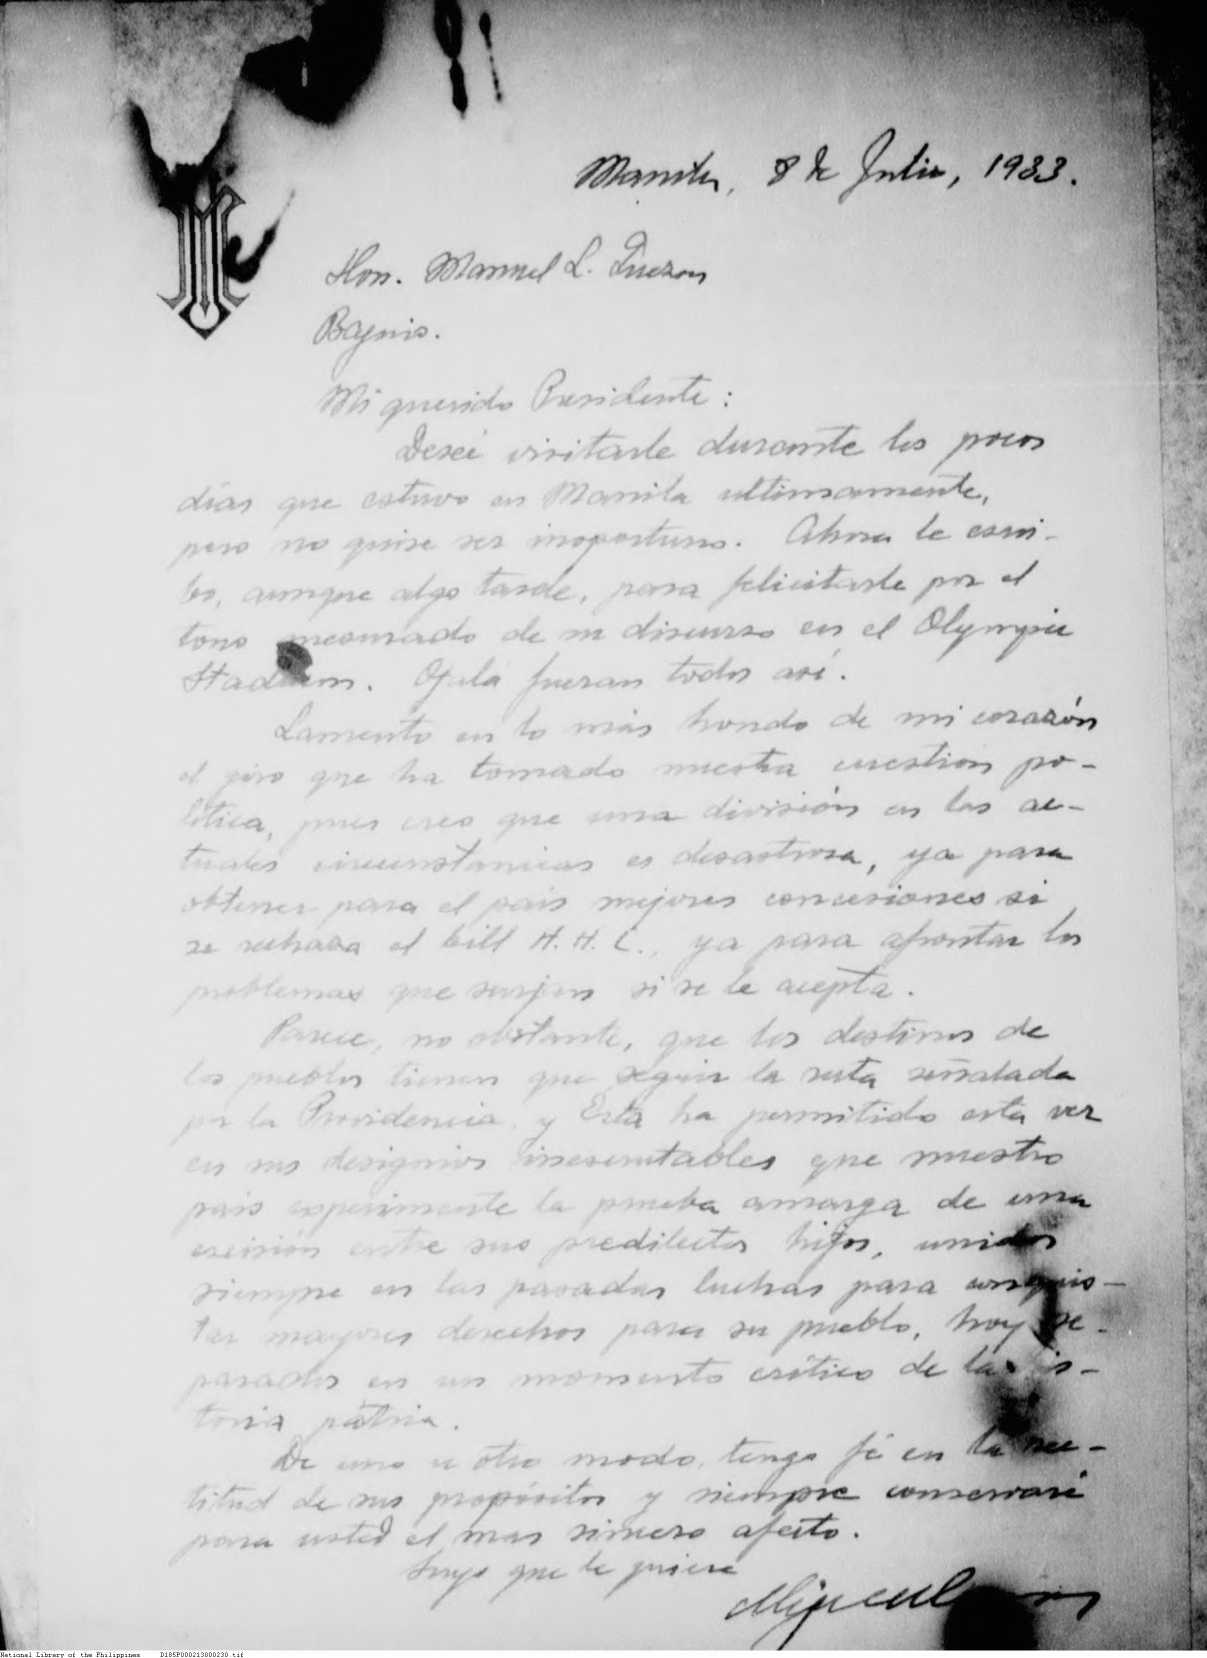 Manila, 8 de Julio, 1933.
Hon. Manuel L. Quezon
Baguio.
Mi querido Presidente:
Deseé visitarle durante los pocos
días que estuvo en Manila ultimamente,
pero no quise ser inoportuno. Ahora le escri-
bo, aunque algo tarde, para felicitarle por el
tono mesurado de su discurso en el Olympic
Stadium. Ojalá fueran todos así.
Lamento en lo más hondo de mi corazón
el giro que ha tomado nuestra cuestion po-
lítica, pues creo que una división en las ac-
tuales circunstancias es desastrosa, ya para
obtener para el país mejores concesiones si
se rechaza el bill H. H. C., ya para afrontar los
problemas que surjan si se le acepta.
Parece, no obstante, que los destinos de
los pueblos tienen que seguir la ruta señalada
por la Providencia, y Esta ha permitido esta vez
en sus designios inescrutables que nuestro
país experimente la prueba amarga de una
escisión entre sus predilectos hijos, unidos
siempre en las pasadas luchas para conquis-
tar mayores derechos para su pueblo, hoy se-
parados en un momento crítico de la is-
toria pátria.
De uno u otro modo, tengo fé en la rec-
titud de sus propósitos y siempre conservaré
para usted el mas sincero afecto.
Suyo que le quiere
Miguel
National Library of the Philippines D185P000213000230.tif